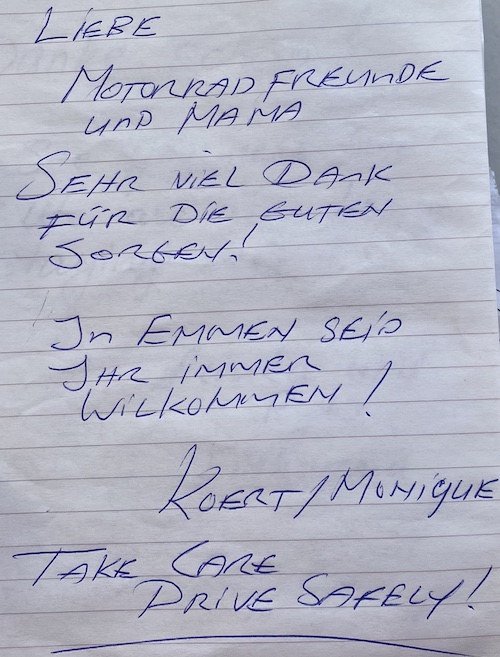 LIEBE
MOTORRAD FREUNDE
UND MAMA
SEHR VIEL DANK
FÜR DIE GUTEN
SORGEN!
IN EMMEN SEID
IHR IMMER
WILKOMMEN!
KOERT/MONIQUE
TAKE CARE
DRIVE SAFELY!